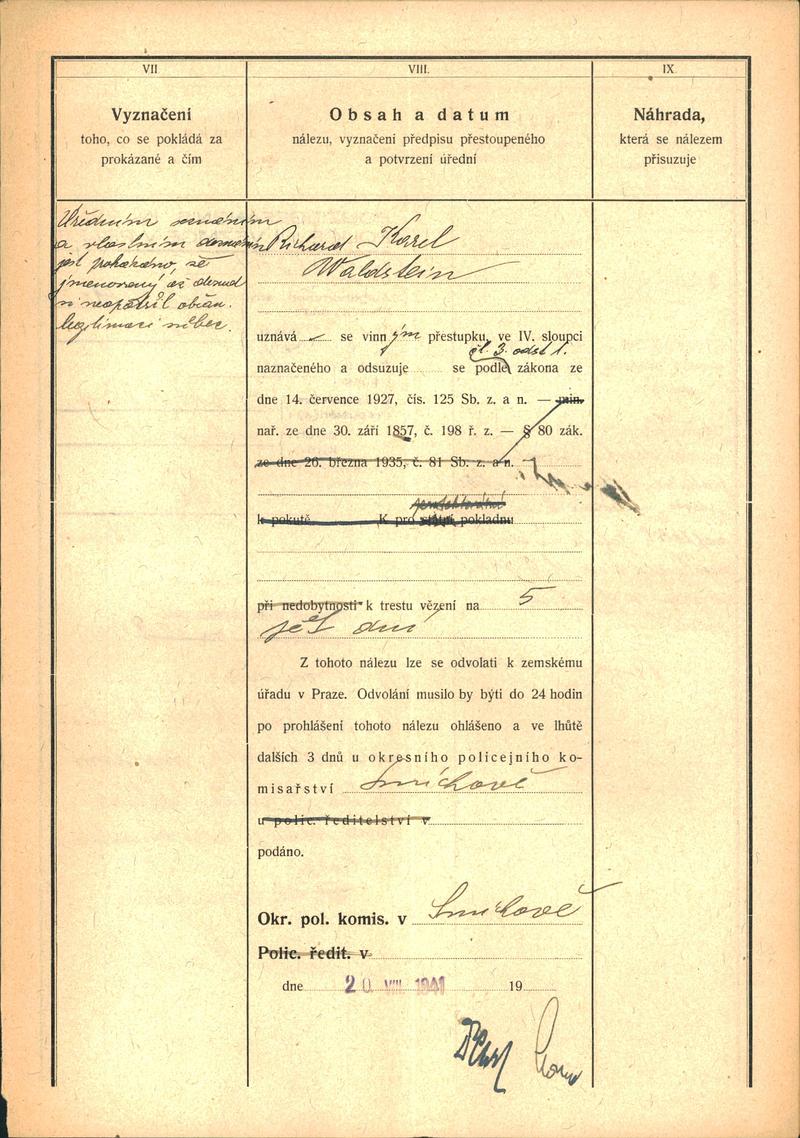 VII
VIII.
IX
Vyznačení
toho, co se pokládá za
prokázané a čím
Obsah a datum
nálezu, vyznačení předpisu přestoupeného
a potvrzení úřední
Náhrada,
která se nálezem
přisuzuje
Úředním
a vlastním
jest prokázáno, že
jmenovaný až dosud
si neopatřil občan.
legitimaci vůbec.
Richard Karel
Waldstein
uznává se vinným přestupku, ve IV. sloupci
čl. 3. odst 1.
naznačeného a odsuzuje se podle zákona ze
dne 14. července 1927, čís. 125 Sb. z. a n. — min.
nař. ze dne 30. září 1857, č. 198 ř. z. — § 80 zák.
ze dne 26. března 1935, č. 81 Sb. z. a n.
k pokutě K pro státní pokladnu
při nedobytnosti k trestu vězení na 5
pět dní
Z tohoto nálezu lze se odvolati k zemskému
úřadu v Praze. Odvolání musilo by býti do 24 hodin
po prohlášení tohoto nálezu ohlášeno a ve lhůtě
dalších 3 dnů u okresního policejního ko-
misařství Smíchově
u polic. ředitelství v
podáno.
Okr. pol. komis. v Smíchově
Polic. ředit. v
dne 20. VIII. 1941 19